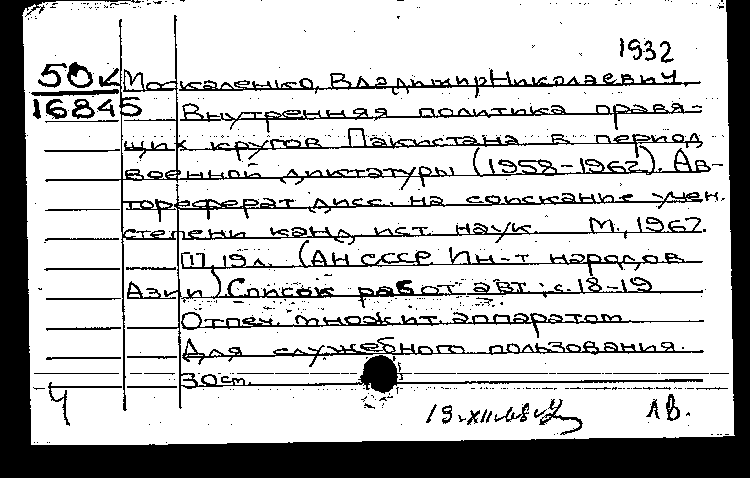 1932
50к Москаленко, Владимир Николаевич.
16845 Внутренняя политика правя-
щих кругов Пакистана в период
военной диктатуры (1958-1962). Ав-
тореферат дисс. на соискание учен.
степени канд. ист. наук. М., 1967.
19 л. (АН СССР. Ин-т народов
Азии) Список работ авт.: с. 18-19
Отпеч. множит. аппаратом
Для служебного пользования.
30 см.
Ч ЛВ.